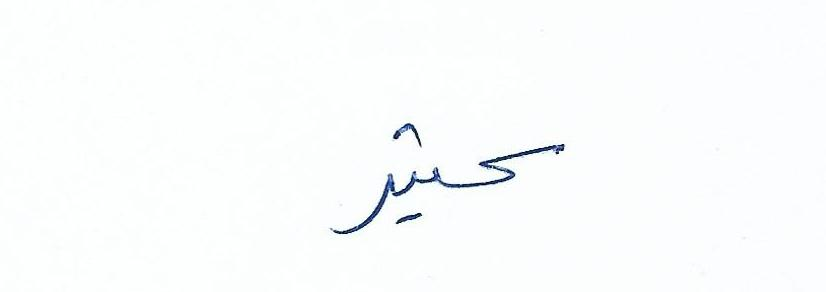 كثير